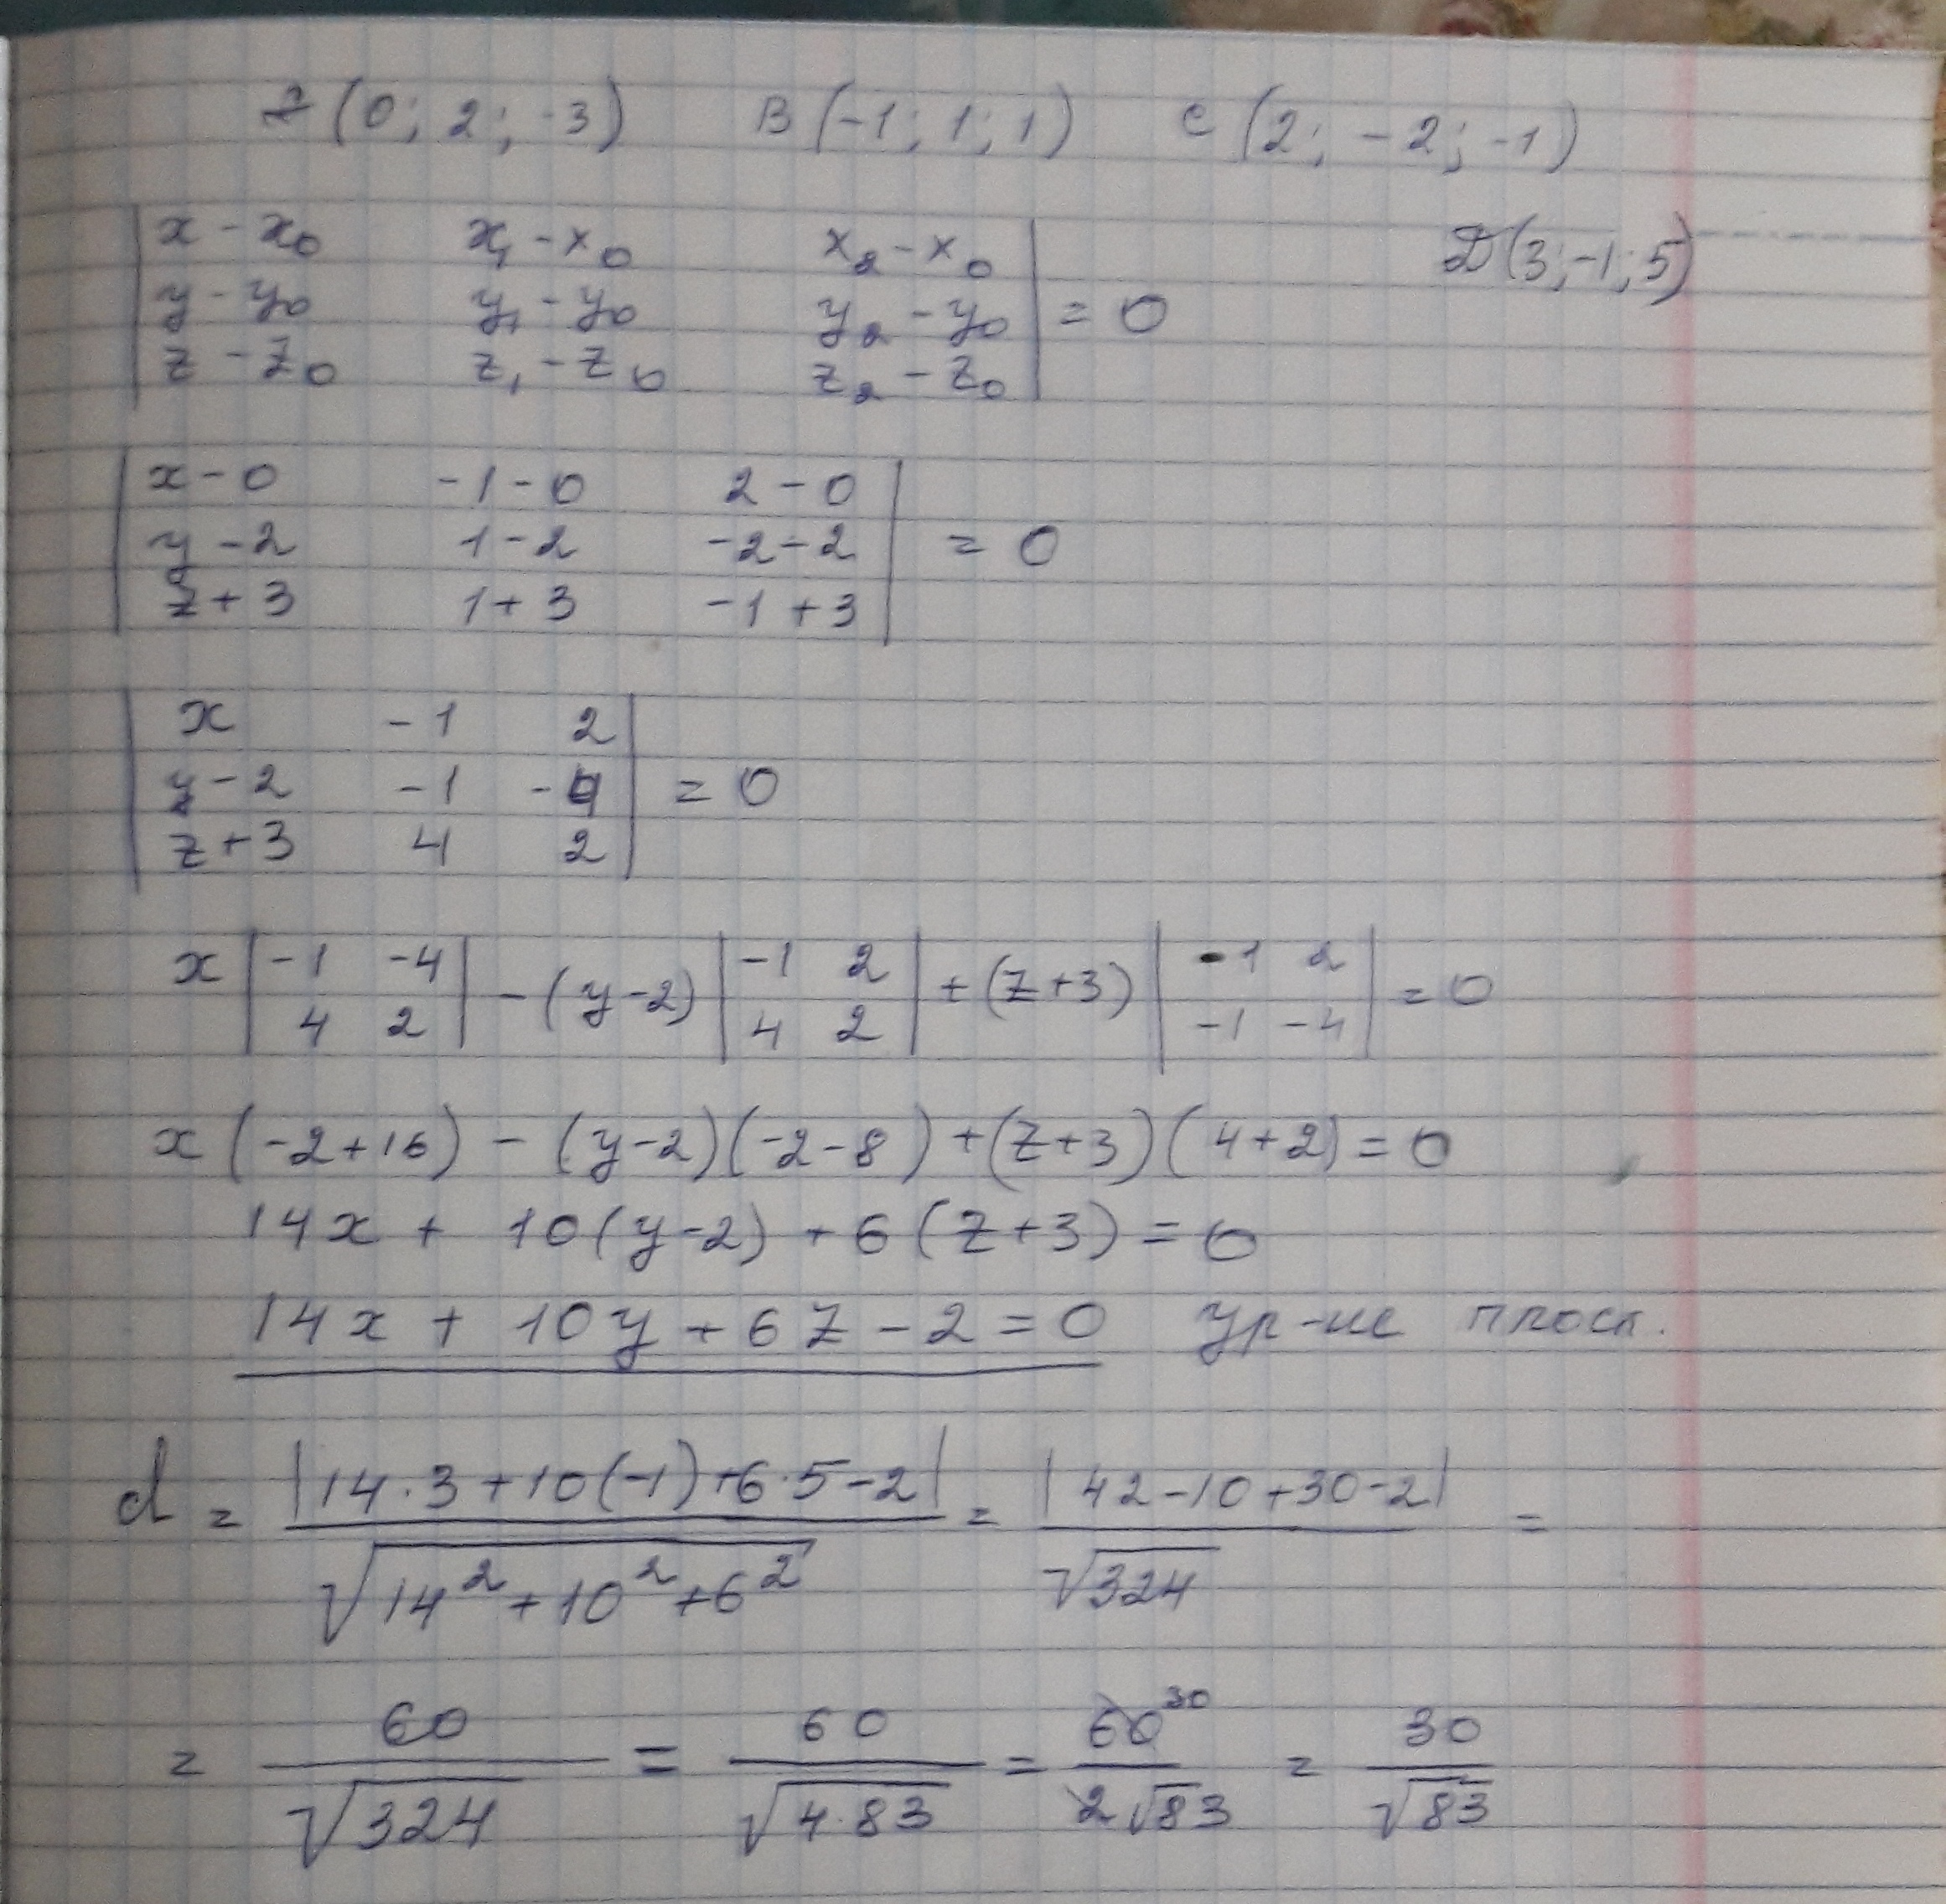 A(0; 2; -3) B(-1; 1; 1) C(2; -2; -1)
D(3; -1; 5)
| x - x₀ x₁ - x₀ x₂ - x₀ |
| y - y₀ y₁ - y₀ y₂ - y₀ | = 0
| z - z₀ z₁ - z₀ z₂ - z₀ |
| x - 0 -1 - 0 2 - 0 |
| y - 2 1 - 2 -2 - 2 | = 0
| z + 3 1 + 3 -1 + 3 |
| x -1 2 |
| y - 2 -1 -4 | = 0
| z + 3 4 2 |
x | -1 -4 | - (y - 2) | -1 2 | + (z + 3) | -1 2 | = 0
| 4 2 | | 4 2 | | -1 -4 |
x(-2 + 16) - (y - 2)(-2 - 8) + (z + 3)(4 + 2) = 0
14x + 10(y - 2) + 6(z + 3) = 0
14x + 10y + 6z - 2 = 0 ур-ие плоск.
d = |14·3 + 10(-1) + 6·5 - 2| / √(14² + 10² + 6²) = |42 - 10 + 30 - 2| / √324 =
= 60 / √324 = 60 / √(4·83) = 60 30 / 2√83 = 30 / √83